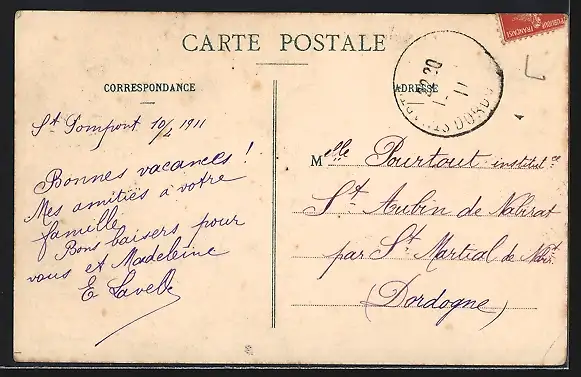 CARTE POSTALE
CORRESPONDANCE
ADRESSE
St Pompont 10/4 1911
Bonnes vacances !
Mes amitiés à votre
famille
Bons baisers pour
vous et Madeleine
E Lavelle
Melle Pourtout institutce
St Aubin de Nabirat
par St Martial de Nabt
(Dordogne)